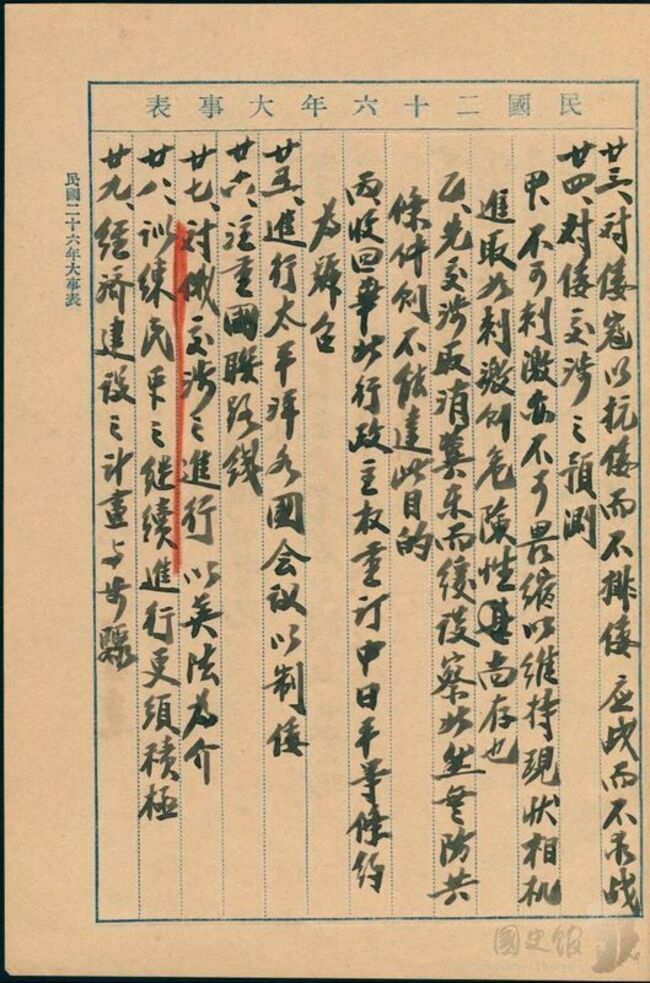 民國二十六年大事表
廿三、对倭寇以抗倭而不排倭应战而不求战
廿四、对倭交涉之預測
甲、不可刺激亦不可畏縮以維持現狀相机
進取如刺激則危險性尚存也
乙、先交涉取消冀東而緩談察北無防共
條件則不能達此目的
丙收回華北行政主权重订中日平等條約
為號召
廿五、進行太平洋各國会议以制倭
廿六、注重國聯路线
廿七、对俄交涉之進行以英法為介
廿八、训練民军之继续進行更須積極
廿九、經濟建设之计畫与步驟
民國二十六年大事表
國史館